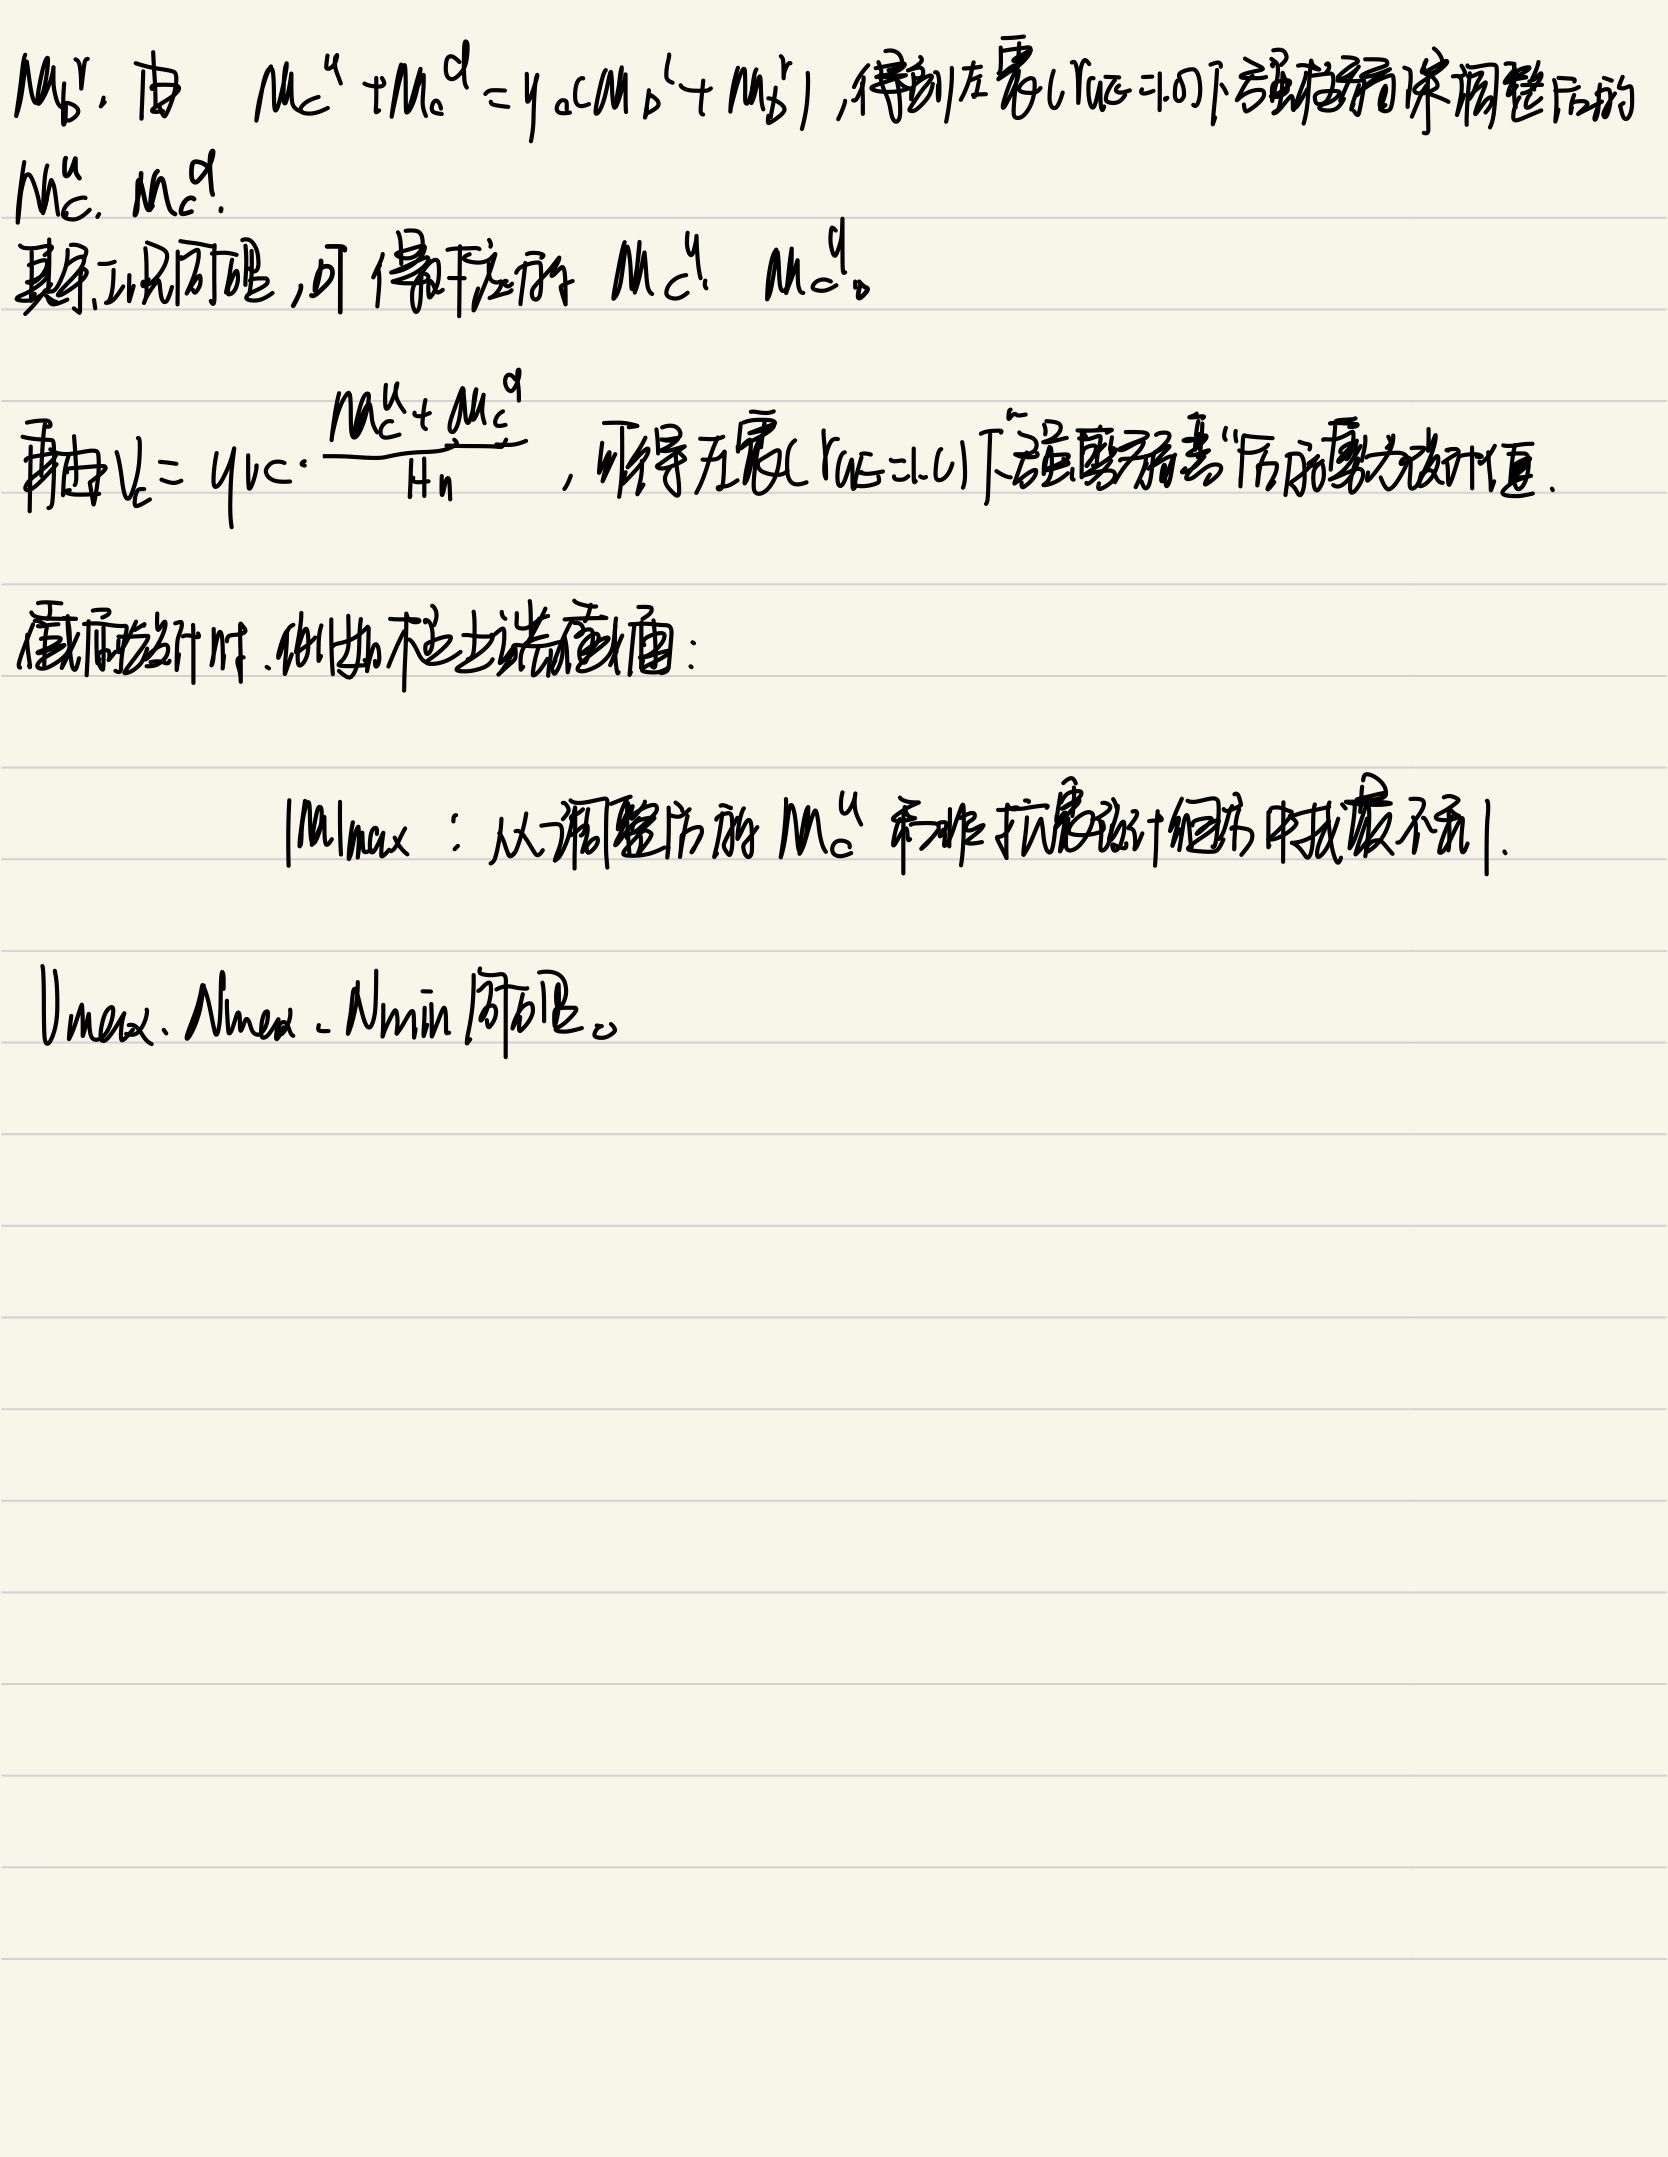 M_b^r. 由 M_c^u + M_c^d = η_c(M_b^l + M_b^r), 得到左震(γ_GE=1.0)下强柱弱梁调整后的
M_c^u. M_c^d.
其余工况同理, 可得 的 M_c^u. M_c^d。
再由 V_c = η_vc · (M_c^u + M_c^d) / H_n , 可得左震(γ_GE=1.0)下"强剪弱弯"后的剪力设计值.
截面设计时. 例如柱上端截面:
|M|max : 从调整后的 M_c^u 和非抗震设计组合中找最不利.
Vmax. Nmax. Nmin 同理。